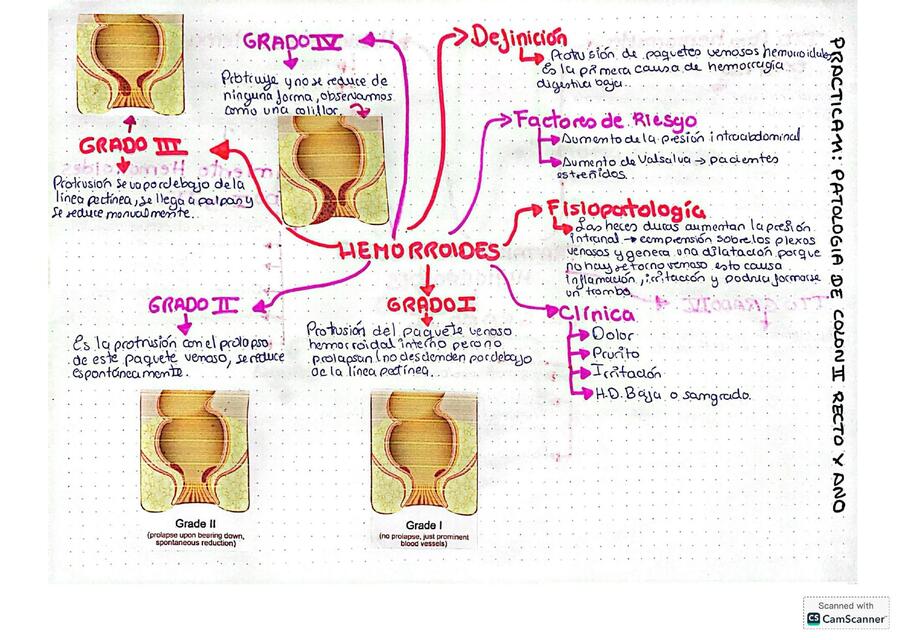 PRACTICAM: PATOLOGIA DE COLON II RECTO Y ANO
HEMORROIDES
Definición
Protrusión de paquetes venosos hemorroidales
Es la primera causa de hemorragia
digestiva baja..
Factores de Riesgo
Aumento de la presión intraabdominal
Aumento de Valsalva → pacientes
estreñidos.
Fisiopatología
Las heces duras aumentan la presión
intranal → comprensión sobre los plexos
venosos y genera una dilatación porque
no hay retorno venoso esto causa
inflamación, irritación y podría formarse
un trombo.
Clínica
Dolor
Prurito
Irritación
H.D. Baja o sangrado.
GRADO I
Protrusión del paquete venoso
hemorroidal interno pero no
prolapsan (no descienden por debajo
de la línea pectínea..
Grade I
(no prolapse, just prominent
blood vessels)
GRADO II
Es la protrusión con el prolapso
de este paquete venoso, se reduce
espontáneamente.
Grade II
(prolapse upon bearing down,
spontaneous reduction)
GRADO III
Protrusión se va por debajo de la
línea pectínea, se llega a palpan y
se reduce manualmente.
GRADO IV
Protruye y no se reduce de
ninguna forma, observamos
como una coliflor.
Scanned with
CS CamScanner